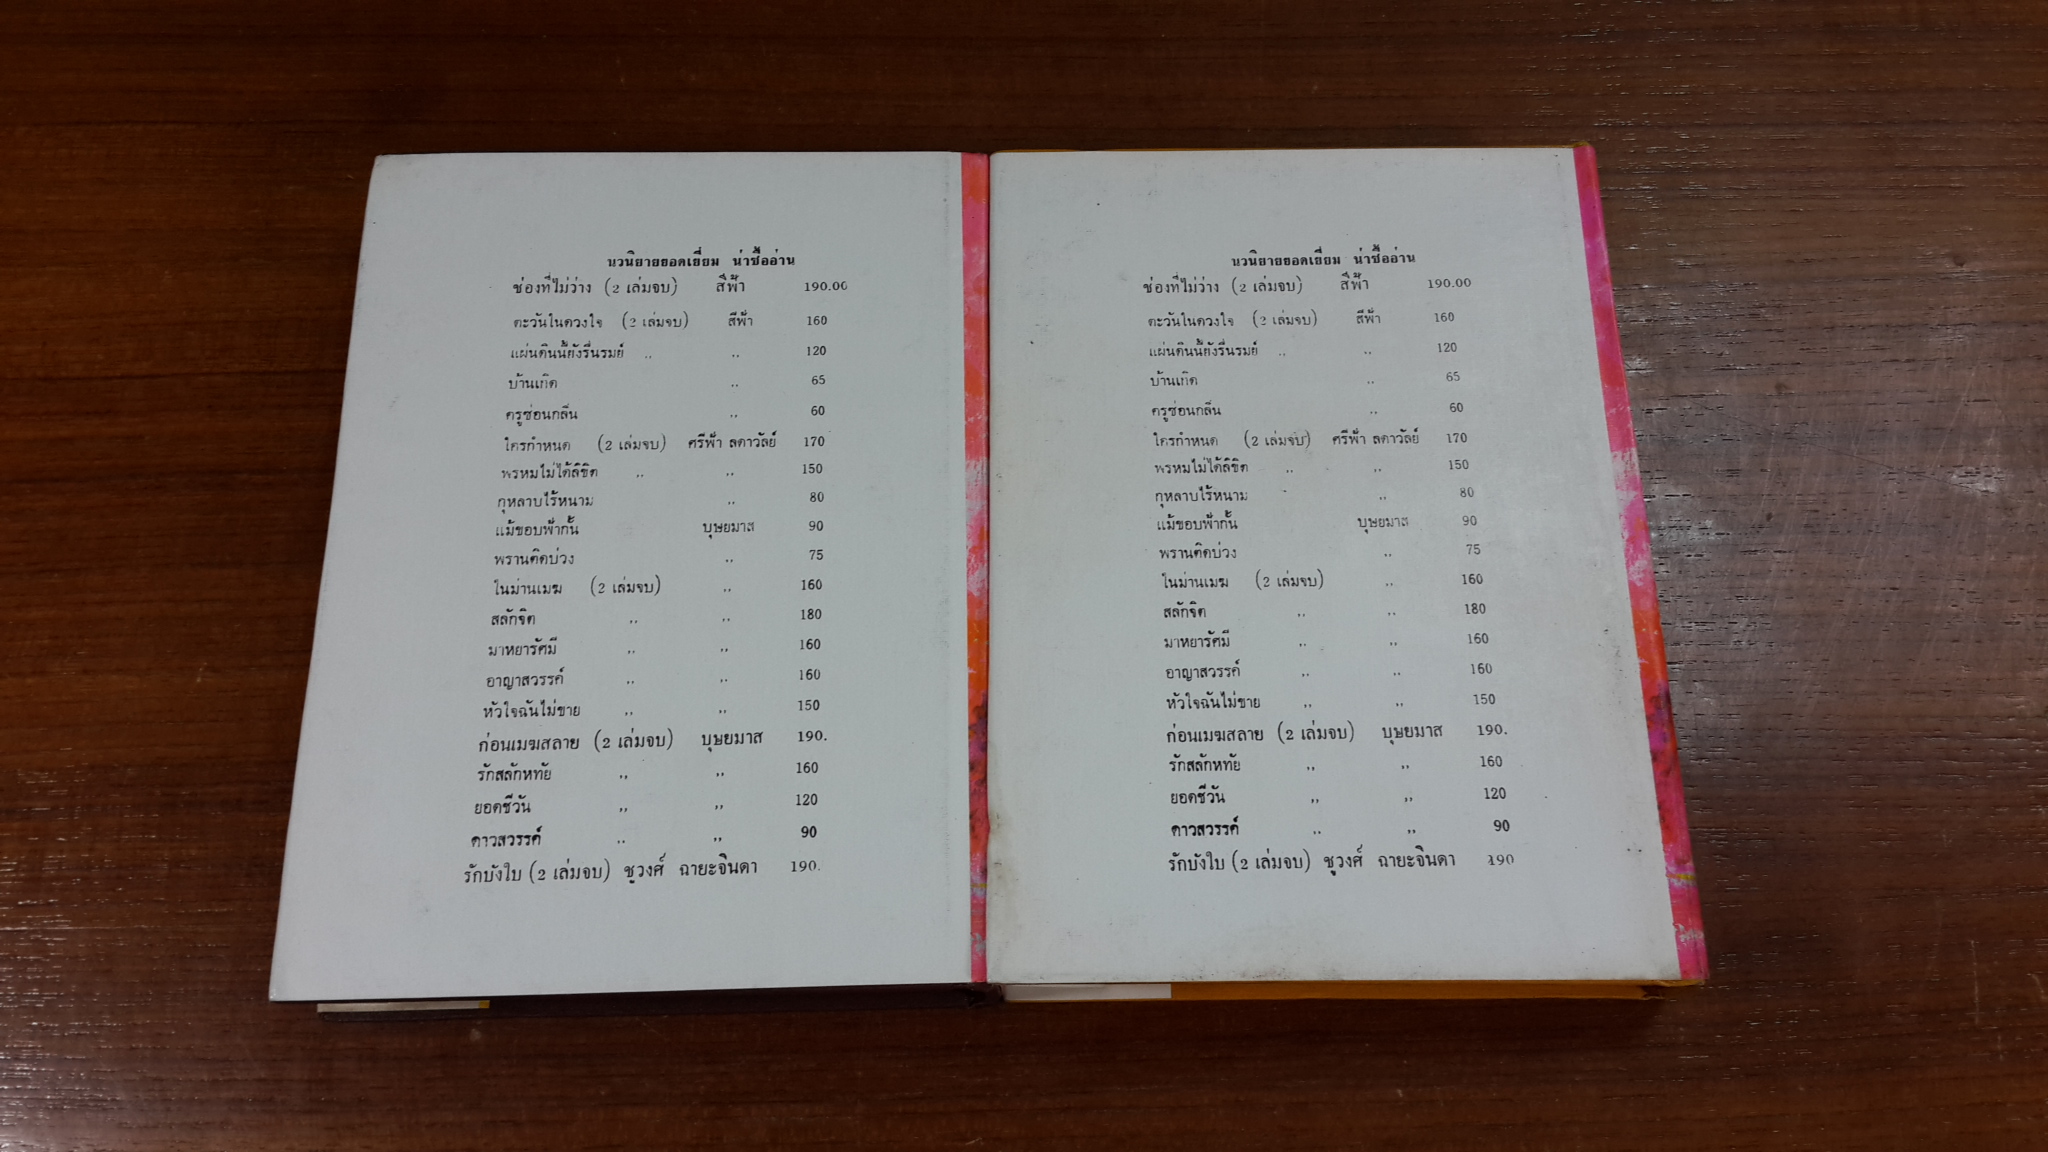 นวนิยายยอดเยี่ยม น่าซื้ออ่าน
ช่องที่ไม่ว่าง (2 เล่มจบ) สีฟ้า 190.00
ตะวันในดวงใจ (2 เล่มจบ) สีฟ้า 160
แผ่นดินนี้ยังรื่นรมย์ ,, ,, 120
บ้านเกิด ,, 65
ครูซ่อนกลิ่น ,, 60
ใครกำหนด (2 เล่มจบ) ศรีฟ้า ลดาวัลย์ 170
พรหมไม่ได้ลิขิต ,, ,, 150
กุหลาบไร้หนาม ,, 80
แม้ขอบฟ้ากั้น บุษยมาส 90
พรานติดบ่วง ,, 75
ในม่านเมฆ (2 เล่มจบ) ,, 160
สลักจิต ,, ,, 180
มาหยารัศมี ,, ,, 160
อาญาสวรรค์ ,, ,, 160
หัวใจฉันไม่ขาย ,, ,, 150
ก่อนเมฆสลาย (2 เล่มจบ) บุษยมาส 190.
รักสลักหทัย ,, ,, 160
ยอดชีวัน ,, ,, 120
ดาวสวรรค์ ,, ,, 90
รักบังใบ (2 เล่มจบ) ชูวงศ์ ฉายะจินดา 190.
นวนิยายยอดเยี่ยม น่าซื้ออ่าน
ช่องที่ไม่ว่าง (2 เล่มจบ) สีฟ้า 190.00
ตะวันในดวงใจ (2 เล่มจบ) สีฟ้า 160
แผ่นดินนี้ยังรื่นรมย์ ,, ,, 120
บ้านเกิด ,, 65
ครูซ่อนกลิ่น ,, 60
ใครกำหนด (2 เล่มจบ) ศรีฟ้า ลดาวัลย์ 170
พรหมไม่ได้ลิขิต ,, ,, 150
กุหลาบไร้หนาม ,, 80
แม้ขอบฟ้ากั้น บุษยมาส 90
พรานติดบ่วง ,, 75
ในม่านเมฆ (2 เล่มจบ) ,, 160
สลักจิต ,, ,, 180
มาหยารัศมี ,, ,, 160
อาญาสวรรค์ ,, ,, 160
หัวใจฉันไม่ขาย ,, ,, 150
ก่อนเมฆสลาย (2 เล่มจบ) บุษยมาส 190.
รักสลักหทัย ,, ,, 160
ยอดชีวัน ,, ,, 120
ดาวสวรรค์ ,, ,, 90
รักบังใบ (2 เล่มจบ) ชูวงศ์ ฉายะจินดา 190